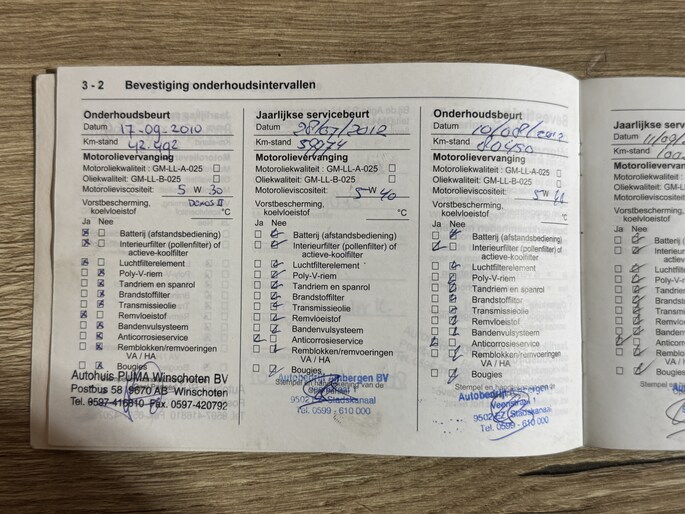 3 - 2 Bevestiging onderhoudsintervallen
Onderhoudsbeurt
Datum 17-09-2010
Km-stand 42.492
Motorolievervanging
Motoroliekwaliteit : GM-LL-A-025
Oliekwaliteit: GM-LL-B-025
Motorolieviscositeit: 5 W 30
Vorstbescherming,
koelvloeistof °C
Ja Nee
Batterij (afstandsbediening)
Interieurfilter (pollenfilter) of
actieve-koolfilter
Luchtfilterelement
Poly-V-riem
Tandriem en spanrol
Brandstoffilter
Transmissieolie
Remvloeistof
Bandenvulsysteem
Anticorrosieservice
Remblokken/remvoeringen
VA / HA
Bougies
Autohuis PUMA Winschoten BV
Postbus 58 9670 AB Winschoten
Tel. 0597-416810 Fax. 0597-420792
Jaarlijkse servicebeurt
Datum 28/07/2012
Km-stand
Motorolievervanging
Motoroliekwaliteit : GM-LL-A-025
Oliekwaliteit: GM-LL-B-025
Motorolieviscositeit: 5 W 40
Vorstbescherming,
koelvloeistof °C
Ja Nee
Batterij (afstandsbediening)
Interieurfilter (pollenfilter) of
actieve-koolfilter
Luchtfilterelement
Poly-V-riem
Tandriem en spanrol
Brandstoffilter
Transmissieolie
Remvloeistof
Bandenvulsysteem
Anticorrosieservice
Remblokken/remvoeringen
VA / HA
Bougies
Autobedrijf
Stempel en handtekening van de
Stadskanaal
Tel. 0599 - 610 000
Onderhoudsbeurt
Datum 10/08/2012
Km-stand
Motorolievervanging
Motoroliekwaliteit : GM-LL-A-025
Oliekwaliteit: GM-LL-B-025
Motorolieviscositeit: 5 W
Vorstbescherming,
koelvloeistof °C
Ja Nee
Batterij (afstandsbediening)
Interieurfilter (pollenfilter) of
actieve-koolfilter
Luchtfilterelement
Poly-V-riem
Tandriem en spanrol
Brandstoffilter
Transmissieolie
Remvloeistof
Bandenvulsysteem
Anticorrosieservice
Remblokken/remvoeringen
VA / HA
Bougies
Stempel en
Autobedrijf
Veenstraat 1
Stadskanaal
Tel. 0599 - 610 000
Jaarlijkse serv
Datum
Km-stand
Motorolievervan
Motoroliekwaliteit :
Oliekwaliteit: GM-L
Motorolieviscositeit
Vorstbescherming,
koelvloeistof
Ja Nee
Batterij (a
Interieurf
actieve-k
Luchtfilte
Poly-V-ri
Tandriem
Brandsto
Transmis
Remvloe
Bandenv
Anticorro
Remblok
VA
Bougies